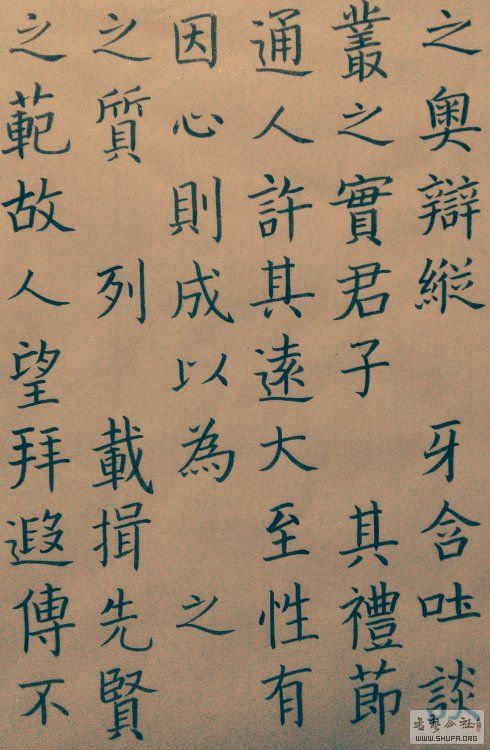 之奧辯縱 牙含吐談
叢之實君子 其禮節
通人許其遠大至性有
因心則成以為 之
之質 列 載揖先賢
之範故人望拜遐傳不
书艺公社
WWW.SHUFA.ORG